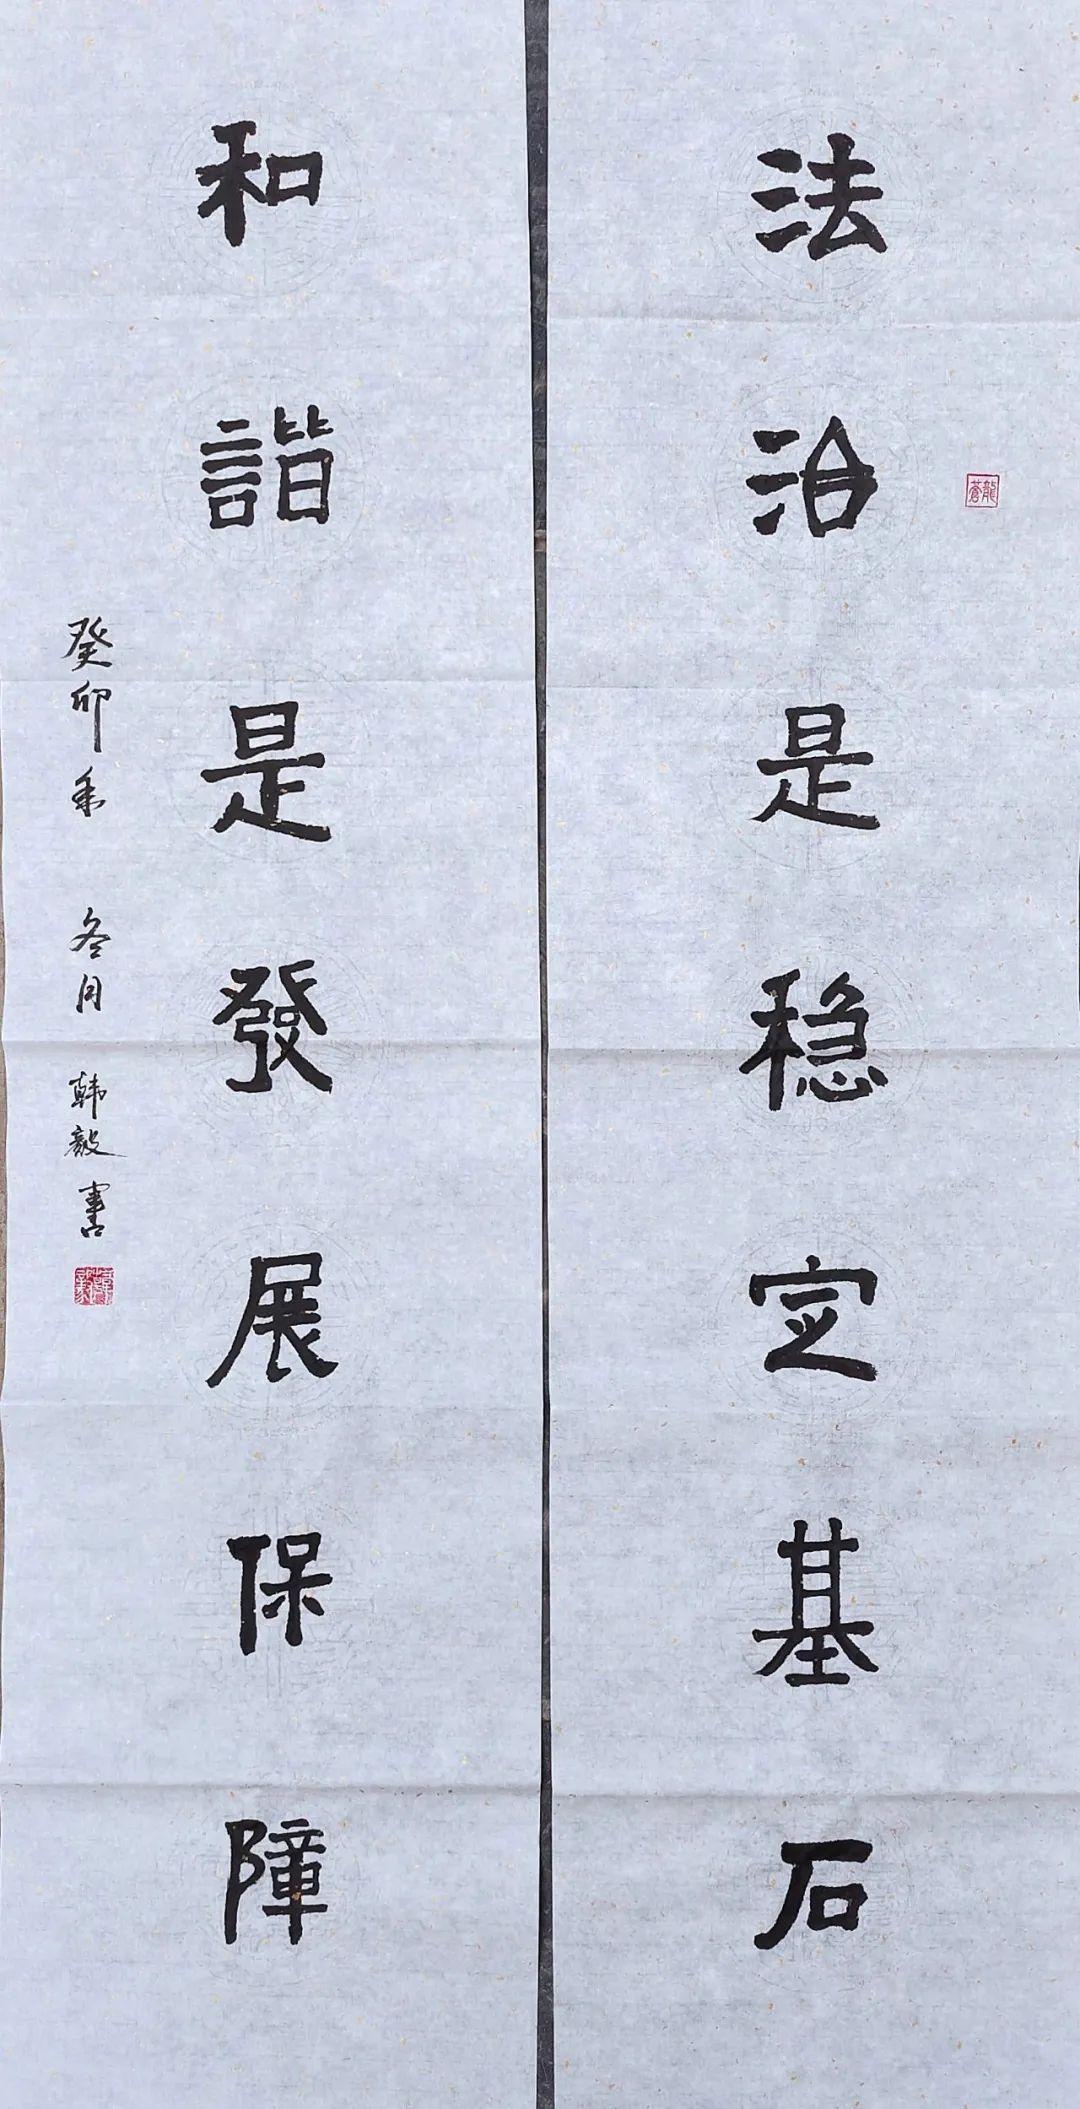 法治是稳定基石
龍蒼
和諧是發展保障
癸卯年 冬月 韩毅書